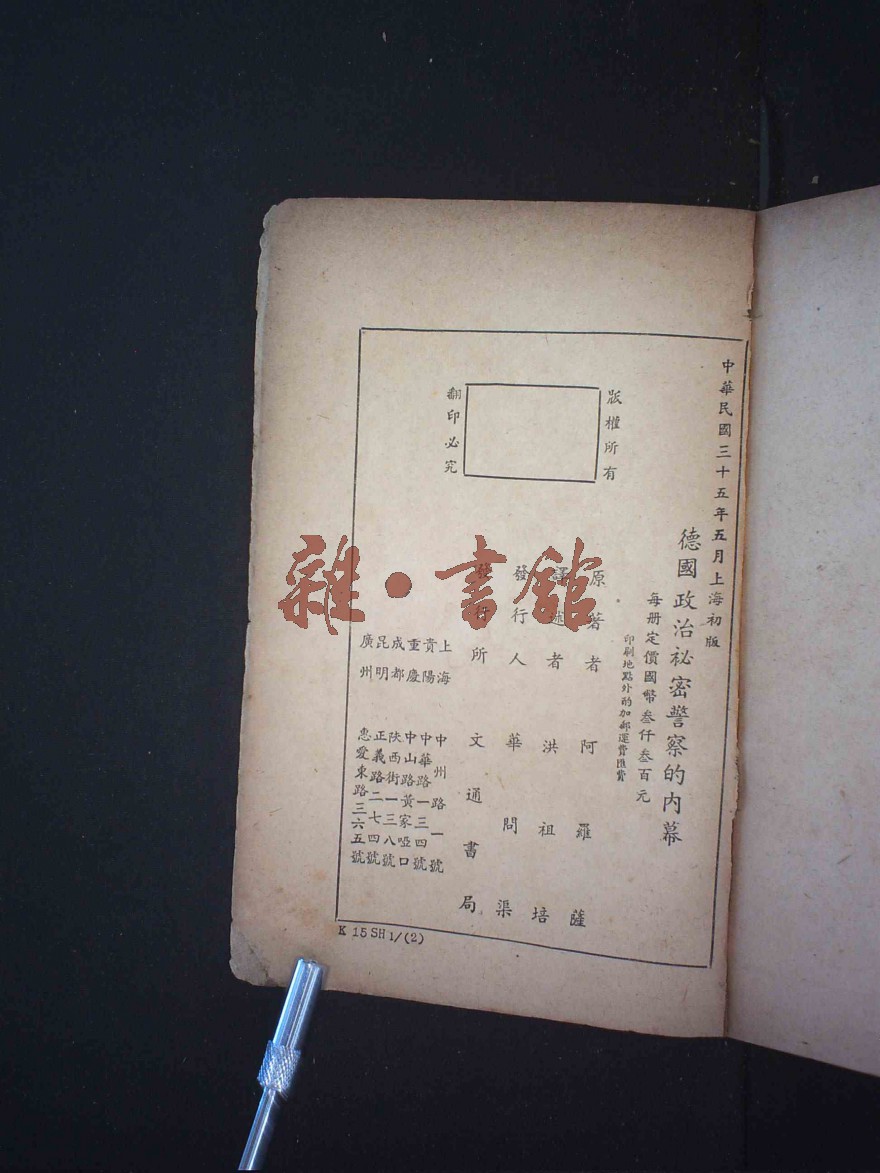 中華民國三十五年五月上海初版
德國政治祕密警察的內幕
每册定價國幣叁仟叁百元
印刷地點外酌加郵運費匯費
版權所有
翻印必究
原著者 阿羅薩
譯述者 洪祖培
發行人 華問渠
發行所 文通書局
上海 中州路一號
貴陽 中華路一三四號
重慶 中山路黃家啞口
成都 陝西街一三八號
昆明 正義路二七四號
廣州 惠愛東路三六五號
K 15 SH 1/(2)
雜·書館